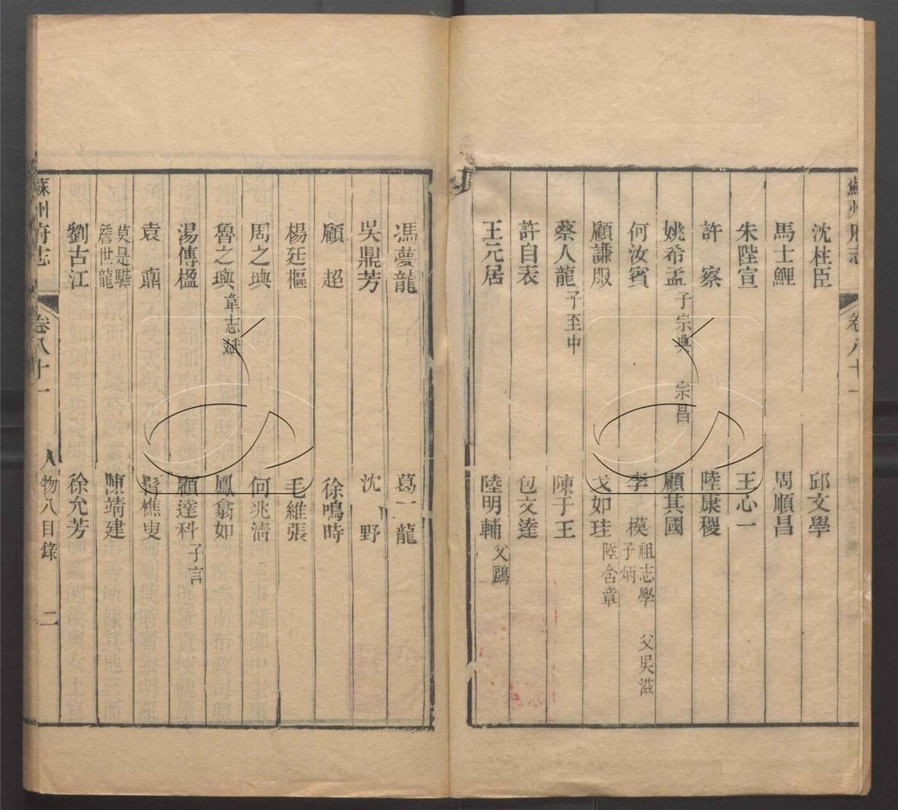 沈桂臣 邱文學
馬士鯉 周順昌
朱陛宣 王心一
許察 陸康稷
姚希孟 子宗典 宗昌 顧其國
何汝賓 李模 祖志學 父吳滋 子炳
顧謙服 戈如珪 陸含章
蔡人龍 子至中 陳于王
許自表 包文達
王元居 陸明輔 父鷗
馮夢龍 葛一龍
吳鼎芳 沈野
顧超 徐鳴時
楊廷樞 毛維張
周之璵 何兆清
魯之璵 韋志斌 鳳翕如
湯傳楹 顧達科 子言
袁鼐 髯樵叟
莫是驊 詹世龍 陳靖建
劉古江 徐允芳
蘇州府志 卷八十一 人物八目錄 二